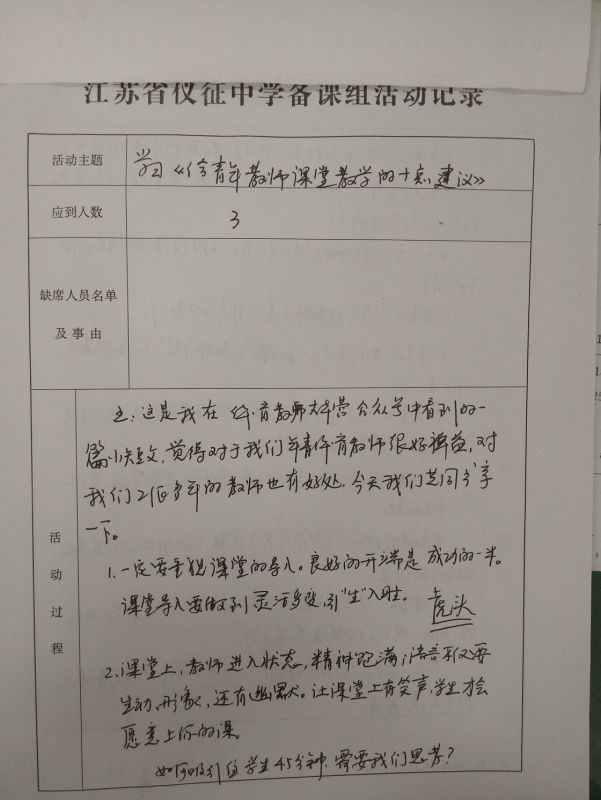 江苏省仪征中学备课组活动记录
活动主题
学习《给青年教师课堂教学的十点建议》
应到人数
3
缺席人员名单
及事由
活动过程
王：这是我在体育教师大本营公众号中看到的一
篇小短文，觉得对于我们年青体育教师很好裨益，对
我们工作多年的教师也有好处。今天我们共同分享
一下。
1.一定要重视课堂的导入。良好的开端是成功的一半。
课堂导入要做到灵活多变，引“生”入胜。 虎头
2.课堂上，教师进入状态，精神饱满，语言不仅要
生动、形象，还有幽默。让课堂上有笑声，学生才会
愿意上你的课。
如何吸引住学生45分钟，需要我们思考？